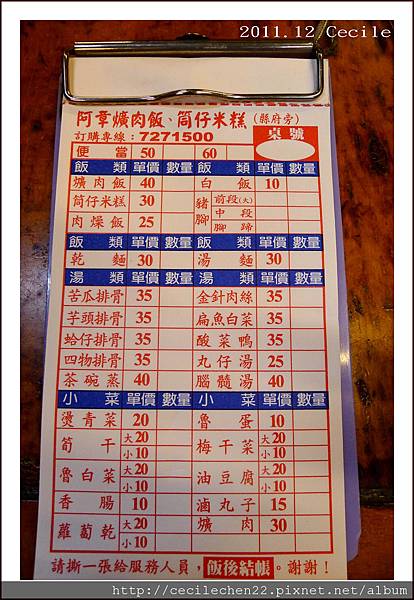 2011.12 Cecile
阿章爌肉飯、筒仔米糕(縣府旁)
訂購專線:7271500
桌號
便當 50 60
飯類 單價 數量 飯類 單價 數量
爌肉飯 40 白飯 10
筒仔米糕 30 豬腳 前段(大)
中段
肉燥飯 25 腳蹄
飯類 單價 數量 飯類 單價 數量
乾麵 30 湯麵 30
湯類 單價 數量 湯類 單價 數量
苦瓜排骨 35 金針肉絲 35
芋頭排骨 35 扁魚白菜 35
蛤仔排骨 35 酸菜鴨 35
四物排骨 35 丸仔湯 25
茶碗蒸 40 腦髓湯 40
小菜 單價 數量 小菜 單價 數量
燙青菜 20 魯蛋 10
筍干 大20 小10 梅干菜 大20 小10
魯白菜 大20 小10 油豆腐 大20 小10
香腸 10 滷丸子 15
蘿蔔乾 大20 小10 爌肉 30
請撕一張給服務人員,飯後結帳。謝謝!
http://cecilechen22.pixnet.net/album